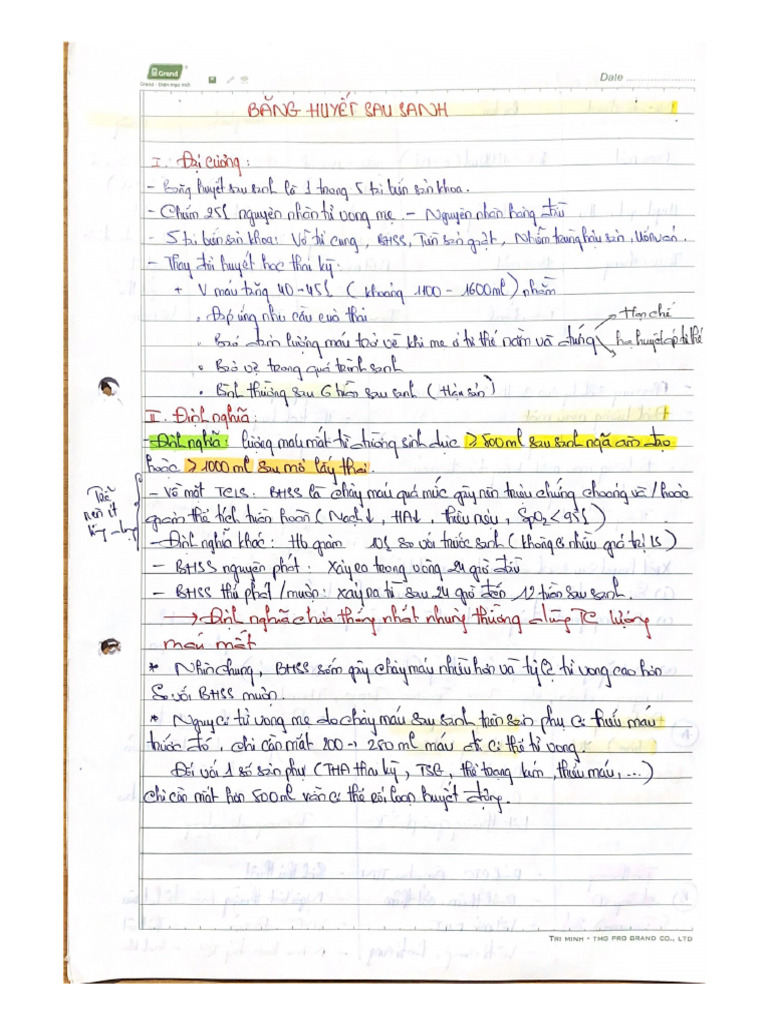 Grand
Grand - Điểm mực mới
Date
BĂNG HUYẾT SAU SANH
I. Đại cương:
- Băng huyết sau sanh là 1 trong 5 tai biến sản khoa.
- Chiếm 25% nguyên nhân tử vong mẹ. - Nguyên nhân hàng đầu
- 5 tai biến sản khoa: Vỡ tử cung, BHSS, Tiền sản giật, Nhiễm trùng hậu sản, Uốn ván.
- Thay đổi huyết học thai kỳ:
+ V máu tăng 40-45% (khoảng 1100 - 1600ml) nhằm
. Đáp ứng nhu cầu của thai
. Bảo đảm lượng máu trở về khi mẹ ở tư thế nằm và đứng
Hạn chế
hạ huyết áp tư thế
. Bảo vệ trong quá trình sanh
. Bình thường sau 6 tuần sau sanh (Hậu sản)
II. Định nghĩa:
- Định nghĩa: lượng máu mất từ đường sinh dục ≥ 500ml sau sanh ngã âm đạo
hoặc ≥ 1000ml sau mổ lấy thai.
- Về mặt TCLS: BHSS là chảy máu quá mức gây nên triệu chứng choáng và/hoặc
giảm thể tích tuần hoàn (Mạch↓, HA↓, thiểu niệu, SpO2 < 95%)
- Định nghĩa khác: Hb giảm 10% so với trước sanh (không có nhiều giá trị LS)
- BHSS nguyên phát: Xảy ra trong vòng 24 giờ đầu
- BHSS thứ phát/muộn: xảy ra từ sau 24 giờ đến 12 tuần sau sanh.
→ Định nghĩa chưa thống nhất nhưng thường dùng TC lượng
máu mất
* Nhìn chung, BHSS sớm gây chảy máu nhiều hơn và tỷ lệ tử vong cao hơn
so với BHSS muộn.
* Nguy cơ tử vong mẹ do chảy máu sau sanh trên sản phụ có thiếu máu
trước đó, chỉ cần mất 200 → 250ml máu đã có thể tử vong.
Đối với 1 số sản phụ (THA thai kỳ, TSG, thể trạng kém, thiếu máu, ...)
chỉ cần mất hơn 500ml vẫn có thể rối loạn huyết động.
TRI MINH - THO PRO GRAND CO., LTD